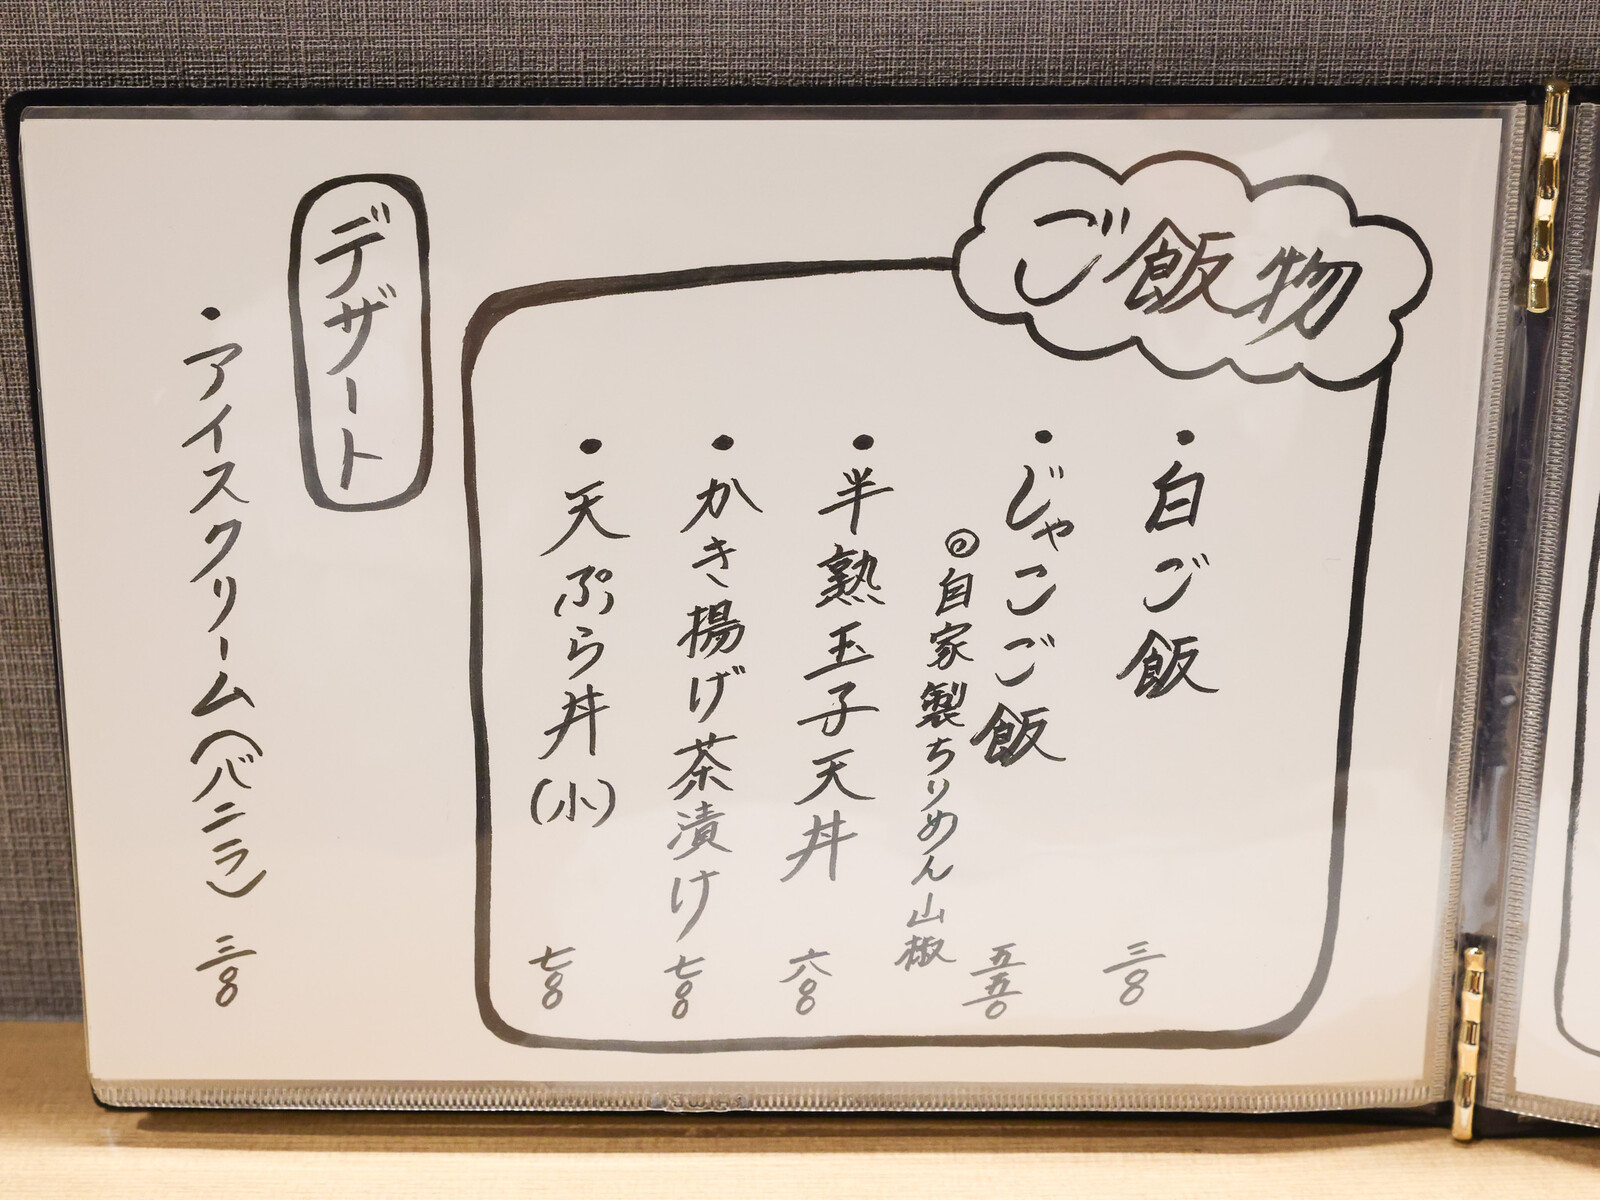 ご飯物
・白ご飯 三〇〇
・じゃこご飯 五五〇
◎自家製ちりめん山椒
・半熟玉子天丼 六〇〇
・かき揚げ茶漬け 七〇〇
・天ぷら丼(小) 七〇〇
デザート
・アイスクリーム(バニラ) 三〇〇